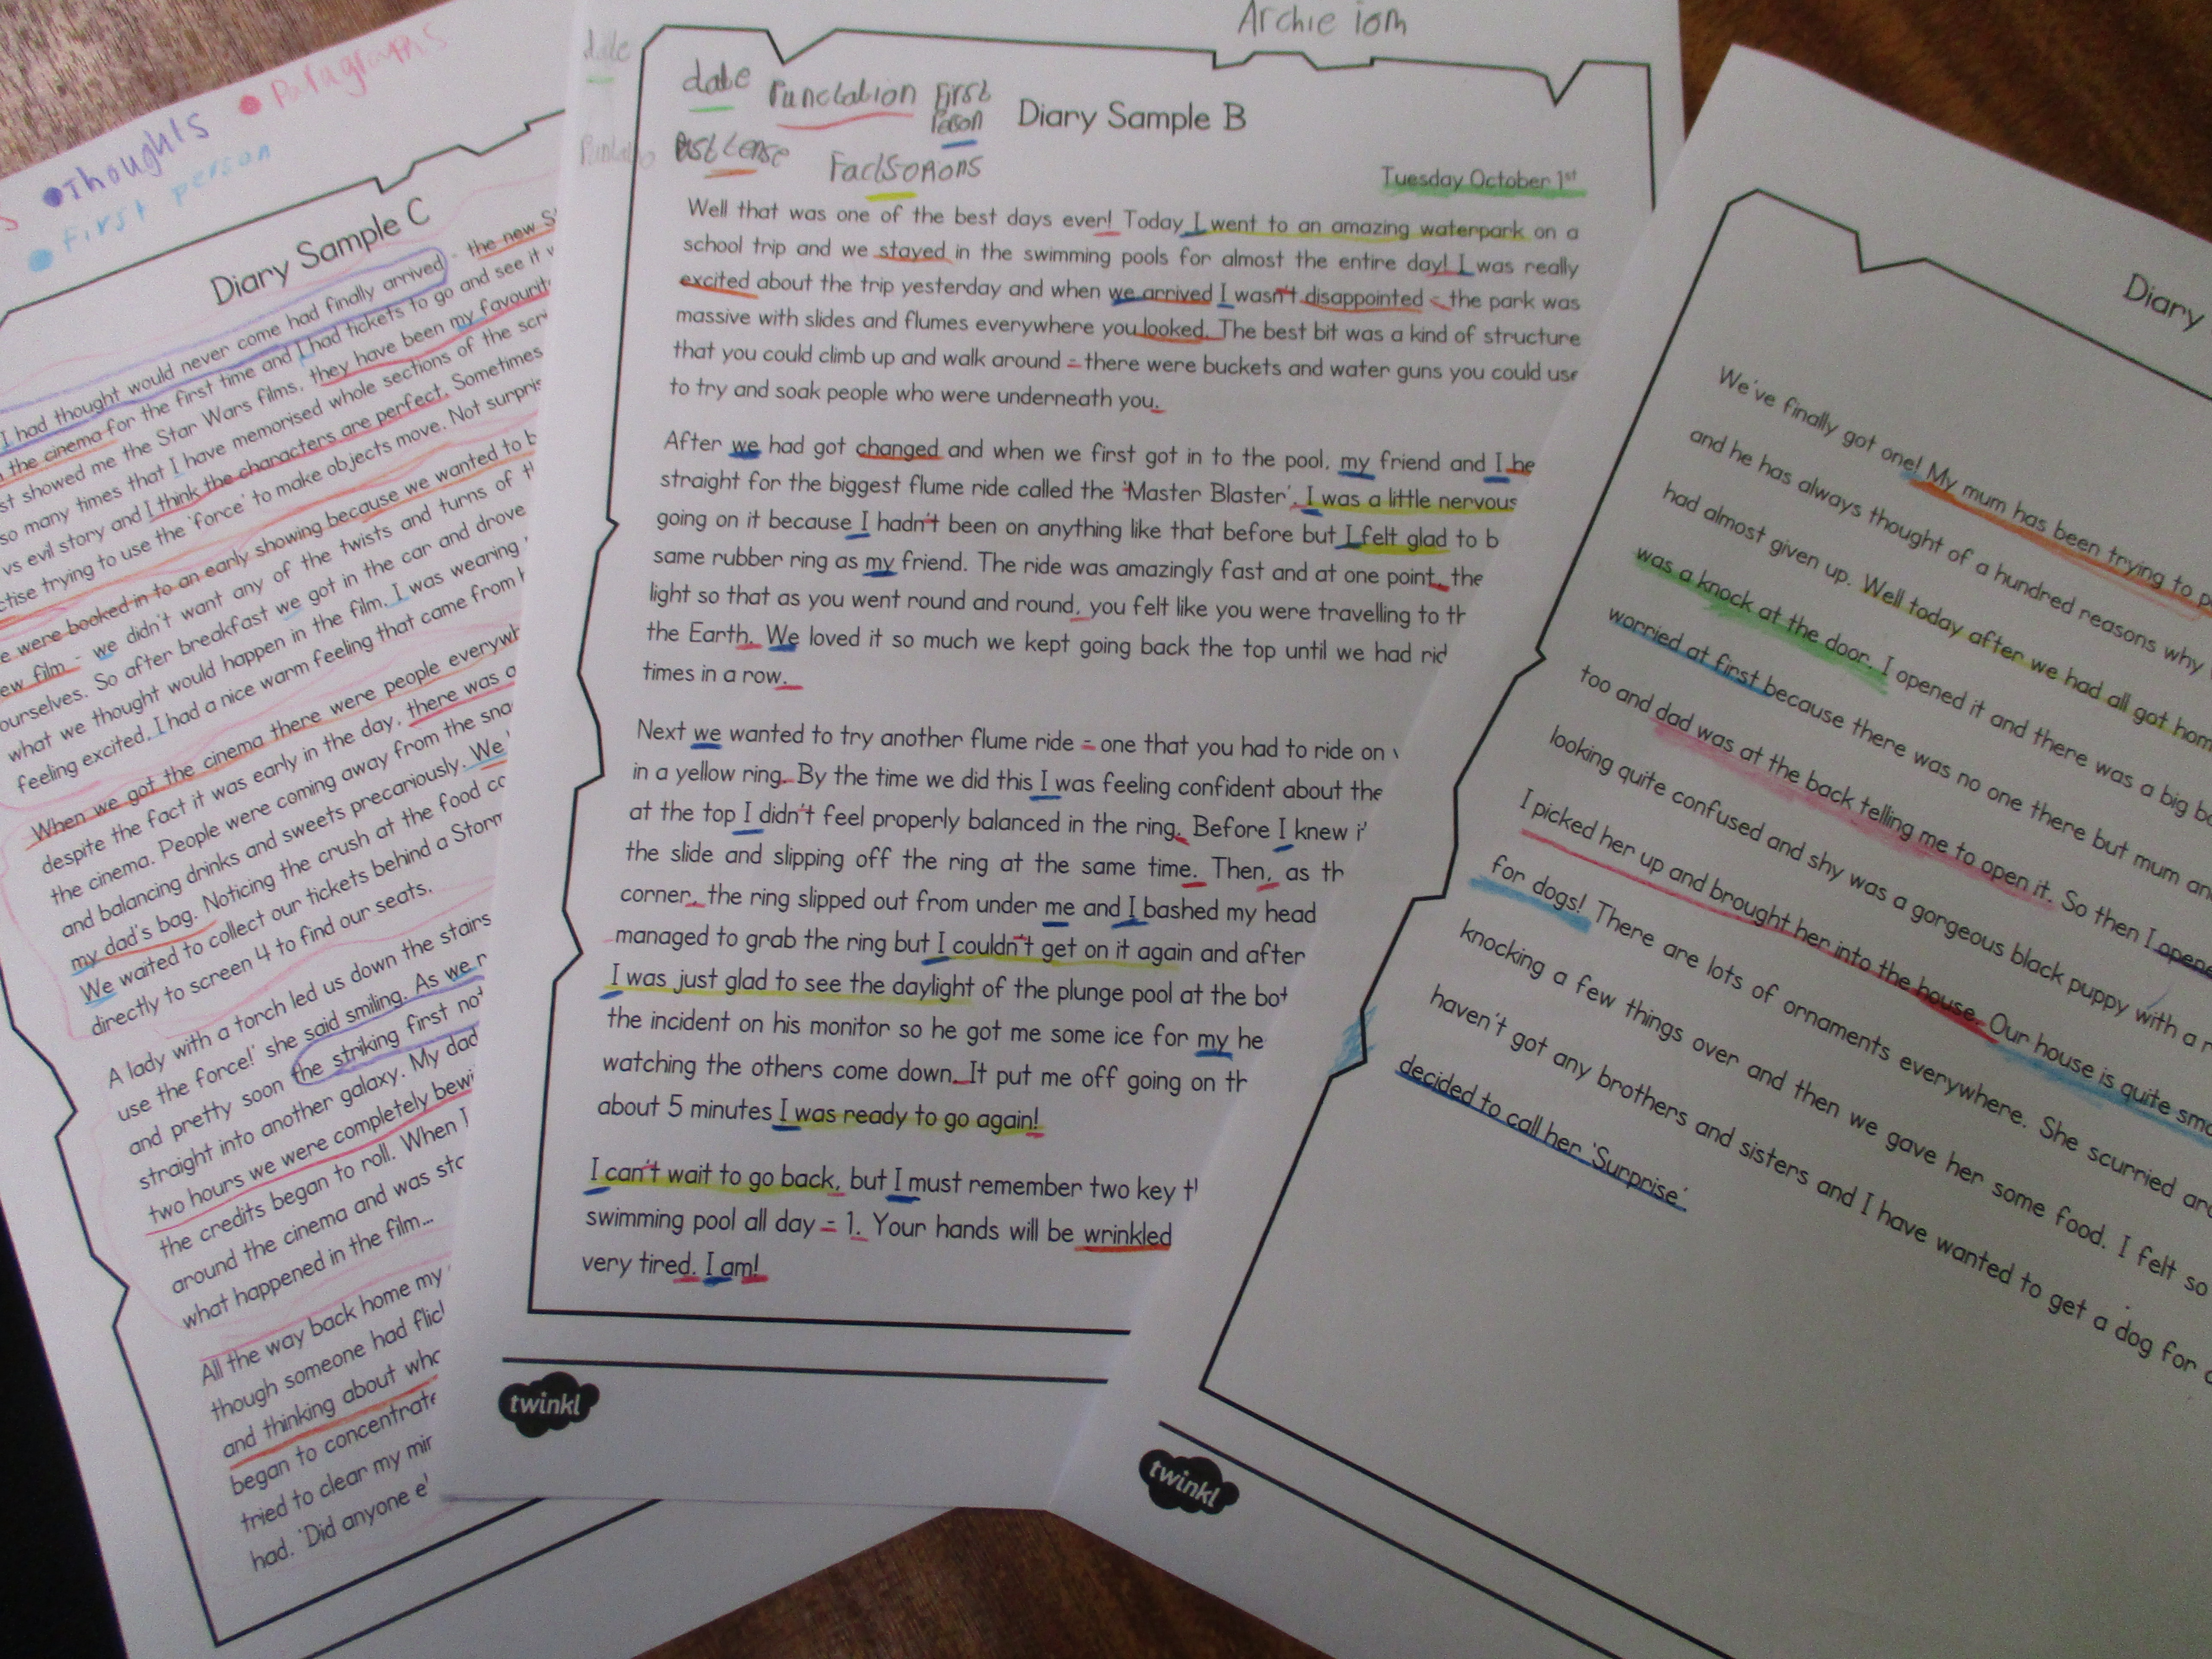 Thoughts
Paragraphs
first person
Diary Sample C
I had thought would never come had finally arrived - the new
the cinema for the first time and I had tickets to go and see it
showed me the Star Wars films, they have been my
so many times that I have memorised whole sections of the
vs evil story and I think the characters are perfect. Sometimes
trying to use the 'force' to make objects move. Not
were booked in to an early showing because we wanted to
film - we didn't want any of the twists and turns of
ourselves. So after breakfast we got in the car and drove
what we thought would happen in the film. I was wearing
feeling excited. I had a nice warm feeling that came from
When we got the cinema there were people
despite the fact it was early in the day, there was
the cinema. People were coming away from the
and balancing drinks and sweets precariously. We
my dad's bag. Noticing the crush at the food
We waited to collect our tickets behind a
directly to screen 4 to find our seats.
A lady with a torch led us down the stairs
use the force!' she said smiling. As we
and pretty soon the striking first
straight into another galaxy. My dad
two hours we were completely
the credits began to roll. When I
around the cinema and was
what happened in the film...
All the way back home my
though someone had
and thinking about
began to concentrate
tried to clear my
had. 'Did anyone
Archie iom
date
date Punctation First
Person
Diary Sample B
Past tense
Tuesday October 1st
Well that was one of the best days ever! Today I went to an amazing waterpark on a
school trip and we stayed in the swimming pools for almost the entire day! I was really
excited about the trip yesterday and when we arrived I wasn't disappointed - the park was
massive with slides and flumes everywhere you looked. The best bit was a kind of structure
that you could climb up and walk around - there were buckets and water guns you could use
to try and soak people who were underneath you.
After we had got changed and when we first got in to the pool, my friend and I
straight for the biggest flume ride called the 'Master Blaster'. I was a little nervous
going on it because I hadn't been on anything like that before but I felt glad to
same rubber ring as my friend. The ride was amazingly fast and at one point, the
light so that as you went round and round, you felt like you were travelling to
the Earth. We loved it so much we kept going back the top until we had
times in a row.
Next we wanted to try another flume ride - one that you had to ride on
in a yellow ring. By the time we did this I was feeling confident about the
at the top I didn't feel properly balanced in the ring. Before I knew
the slide and slipping off the ring at the same time. Then, as
corner, the ring slipped out from under me and I bashed my head
managed to grab the ring but I couldn't get on it again and after
I was just glad to see the daylight of the plunge pool at the
the incident on his monitor so he got me some ice for my
watching the others come down. It put me off going on
about 5 minutes I was ready to go again!
I can't wait to go back, but I must remember two key
swimming pool all day - 1. Your hands will be wrinkled
very tired. I am!
twinkl
Diary
We've finally got one! My mum has been trying to
and he has always thought of a hundred reasons why
had almost given up. Well today after we had all got
was a knock at the door. I opened it and there was a big
worried at first because there was no one there but mum
too and dad was at the back telling me to open it. So then I
looking quite confused and shy was a gorgeous black puppy with a
I picked her up and brought her into the house. Our house is quite
for dogs! There are lots of ornaments everywhere. She scurried
knocking a few things over and then we gave her some food. I felt so
haven't got any brothers and sisters and I have wanted to get a dog for
decided to call her 'Surprise'
twinkl